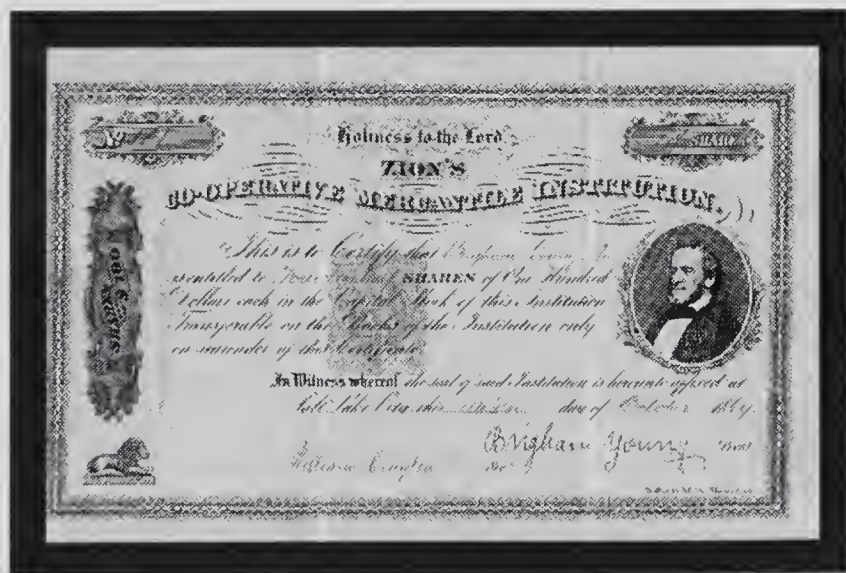 Holiness to the Lord
No
SHARES
ZION'S
CO-OPERATIVE MERCANTILE INSTITUTION.
This is to Certify that Brigham Young
is entitled to Four Hundred SHARES of One Hundred
Dollars each in the Capital Stock of this Institution
Transferable on the Books of the Institution only
on surrender of this Certificate
SHARES $100
In Witness whereof the seal of said Institution is hereunto affixed at
Salt Lake City this day of October 1869
Brigham Young
William Clayton